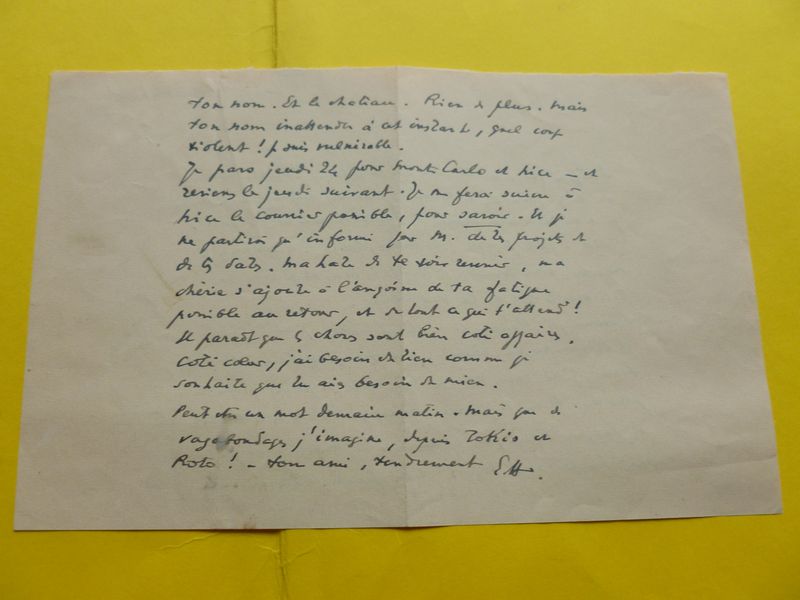 ton nom. Et le château. Rien de plus. Mais
ton nom inattendu à cet instant, quel coup
violent! Je suis vulnérable.
Je pars jeudi 24 pour Monte Carlo et Nice - et
reviens le jeudi suivant. Je me ferai suivre à
Nice le courrier possible, pour savoir. Et je
ne partirai qu'informé par M. de tes projets et
de tes dates. Ma hâte de te voir revenir, ma
chérie s'ajoute à l'angoisse de ta fatigue
possible au retour, et de tout ce qui t'attend!
Il paraît que les choses sont bien côté affaires.
Côté cœur, j'ai besoin du tien comme je
souhaite que tu aies besoin du mien.
Peut être un mot demain matin. Mais que de
vagabondages j'imagine, depuis Tokio et
! - ton ami, tendrement